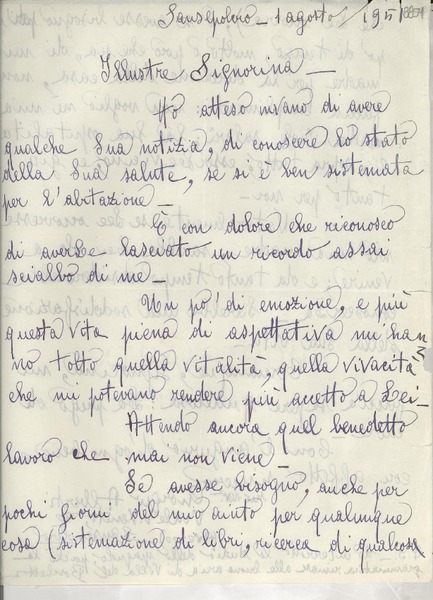 Sansepolcro - 1 agosto 1951
Illustre Signorina -
Ho atteso invano di avere
qualche Sua notizia, di conoscere lo stato
della Sua salute, se si è ben sistemata
per l'abitazione -
È con dolore che riconosco
di averLe lasciato un ricordo assai
scialbo di me -
Un po' di emozione, e più
questa vita piena di aspettativa mi han
no tolto quella vitalità, quella vivacità
che mi potevano rendere più accetto a Lei -
Attendo ancora quel benedetto
lavoro che mai non viene -
Se avesse bisogno, anche per
pochi giorni del mio aiuto per qualunque
cosa (sistemazione di libri, ricerca di qualcosa